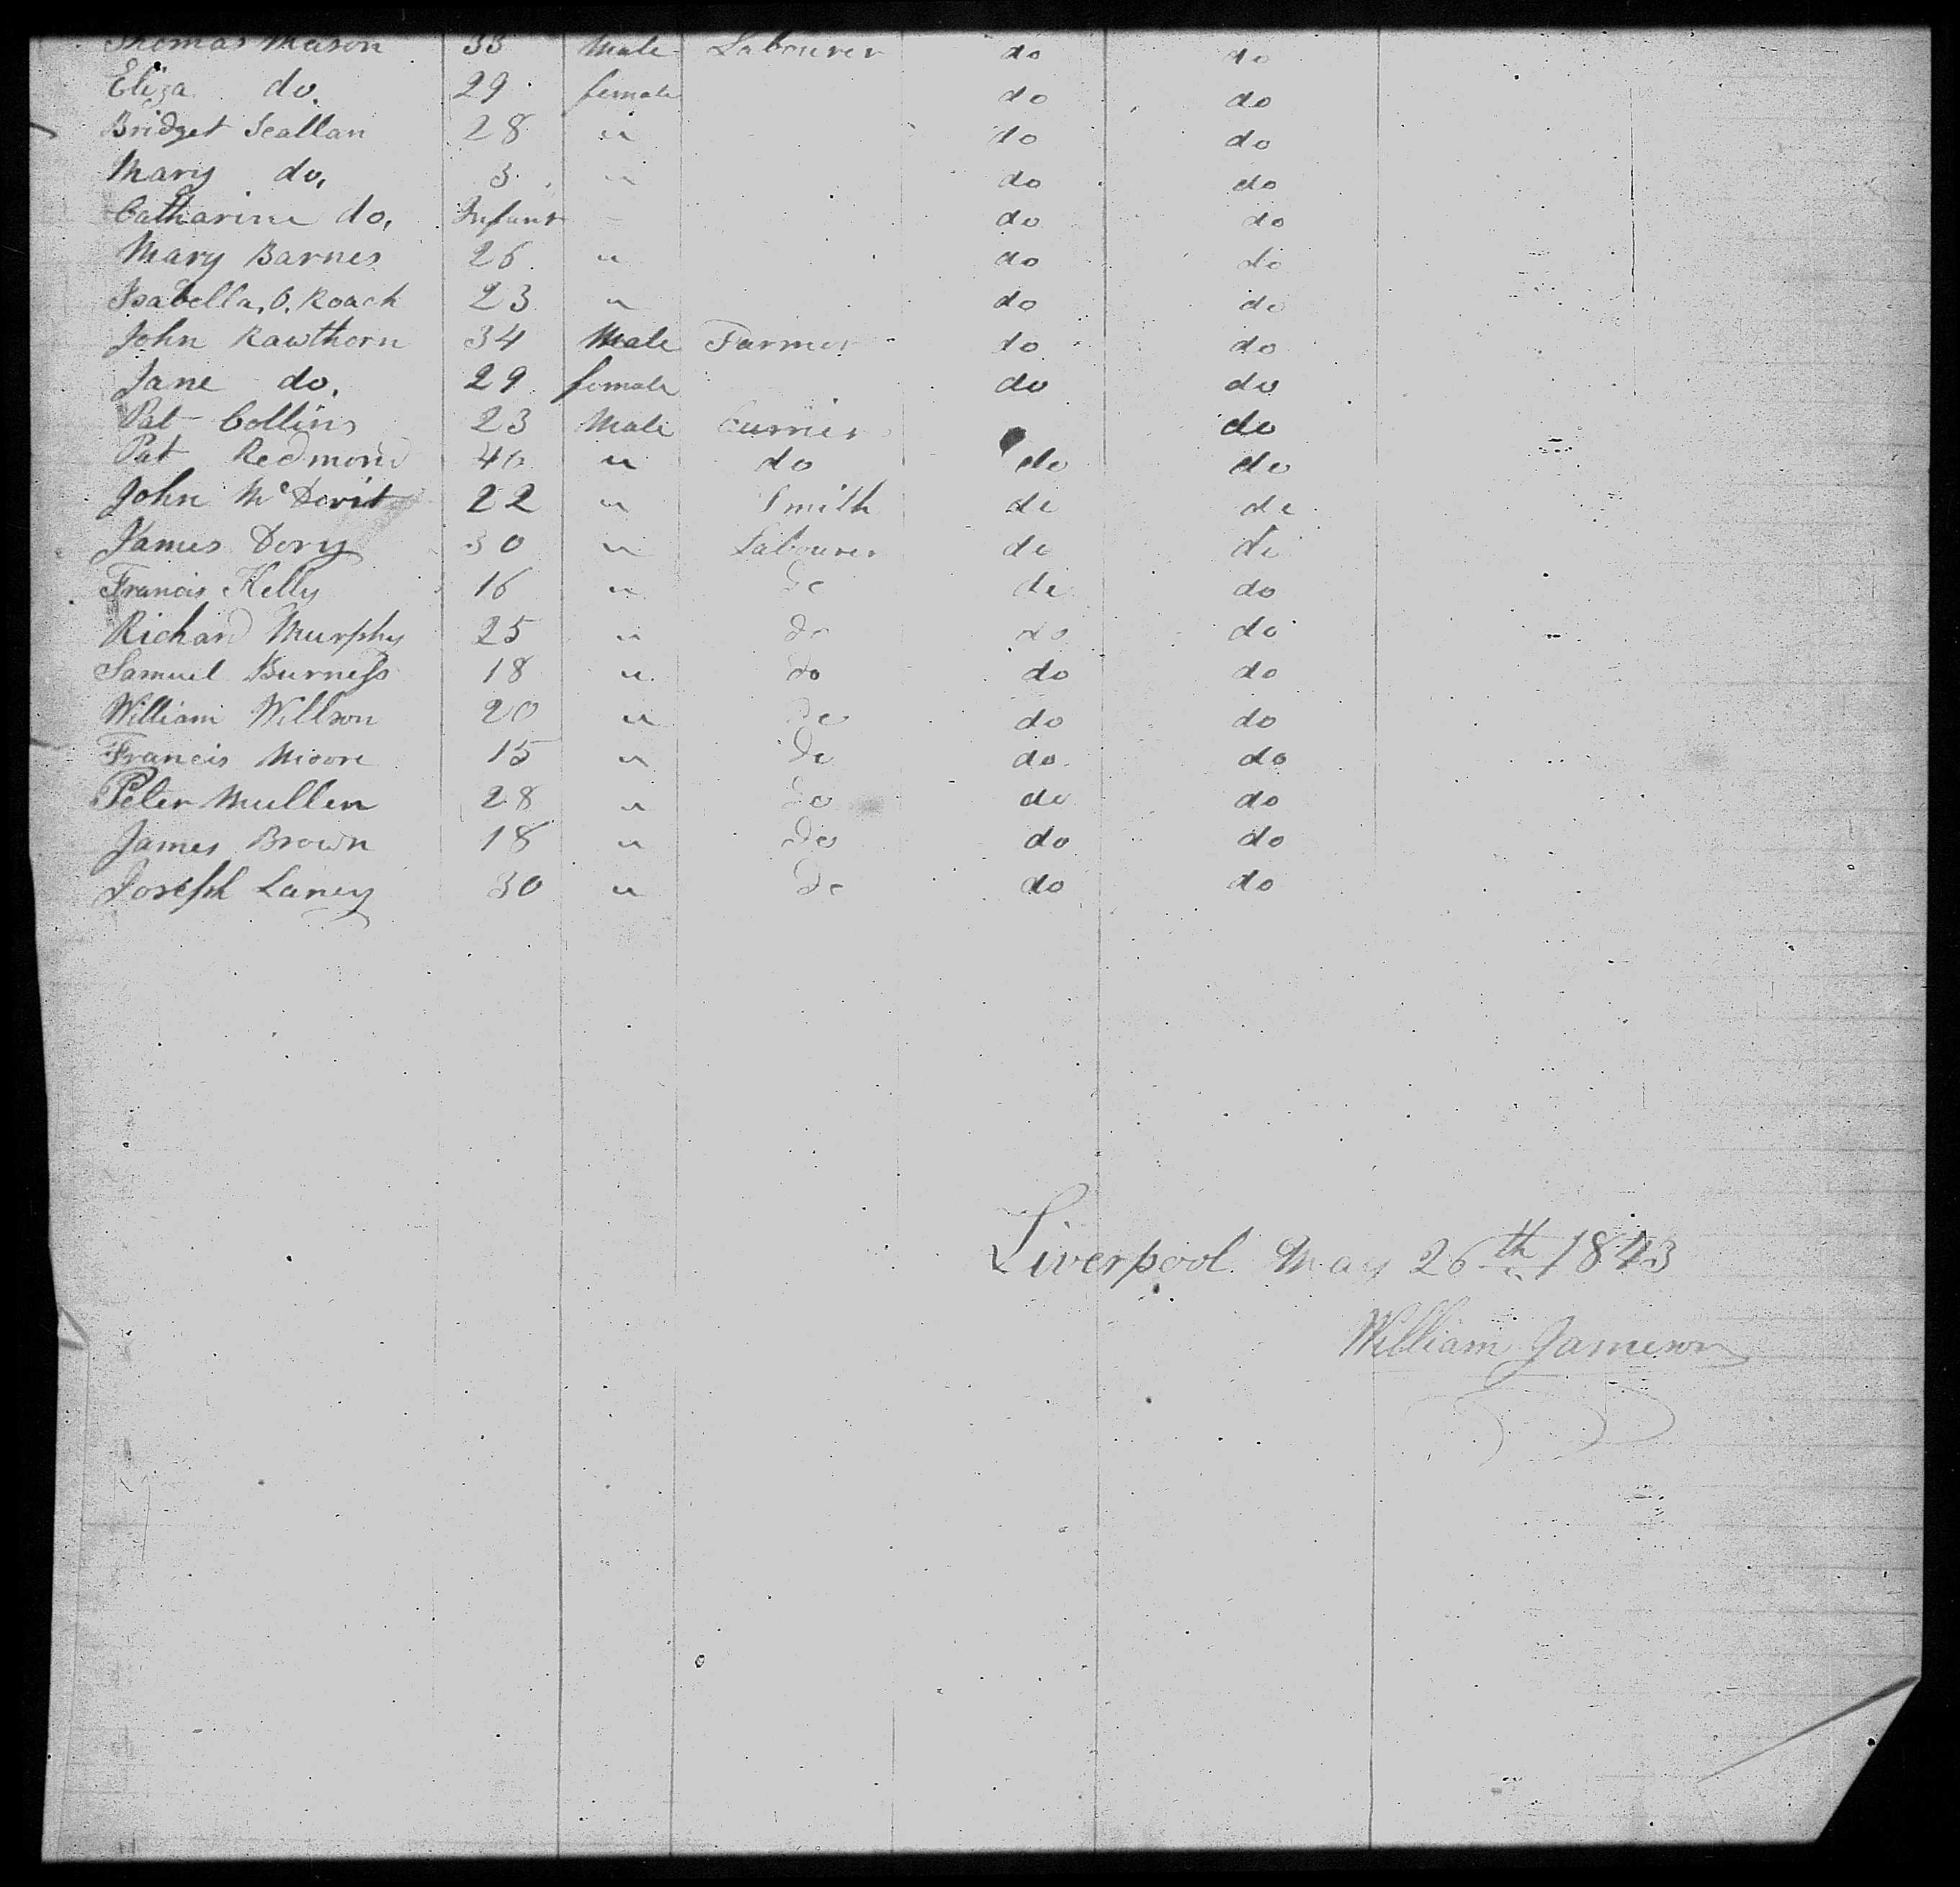 Thomas Mason 33 Male Labourer do do
Eliza do. 29 female do do
Bridget Scallan 28 " do do
Mary do, 3 " do do
Catharine do, Infant do do
Mary Barnes 26 " do do
Isabella, O, Roach 23 " do do
John Rawthorn 34 Male Farmer do do
Jane do, 29 female do do
Pat Collins 23 Male Currier do
Pat Redmond 40 " do do do
John McDevit 22 " Smith do do
James Dory 30 " Labourer do do
Francis Kelly 16 " do do do
Richard Murphy 25 " do do do
Samuel Burness 18 " do do do
William Willson 20 " do do do
Francis Moore 15 " do do do
Peter Mullen 28 " do do do
James Brown 18 " do do do
Joseph Laney 30 " do do do
Liverpool May 26th 1843
William Jameson